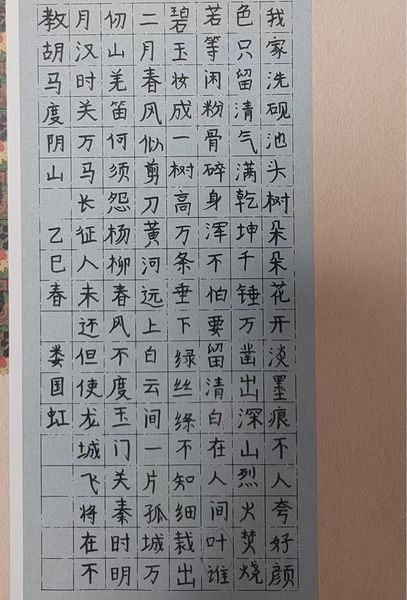 我家洗砚池头树朵朵花开淡墨痕不人夸好颜
色只留清气满乾坤千锤万凿出深山烈火焚烧
若等闲粉骨碎身浑不怕要留清白在人间叶谁
碧玉妆成一树高万条垂下绿丝绦不知细栽出
二月春风似剪刀黄河远上白云间一片孤城万
仞山羌笛何须怨杨柳春风不度玉门关秦时明
月汉时关万马长征人未还但使龙城飞将在不
教胡马度阴山 乙巳春 娄国虹